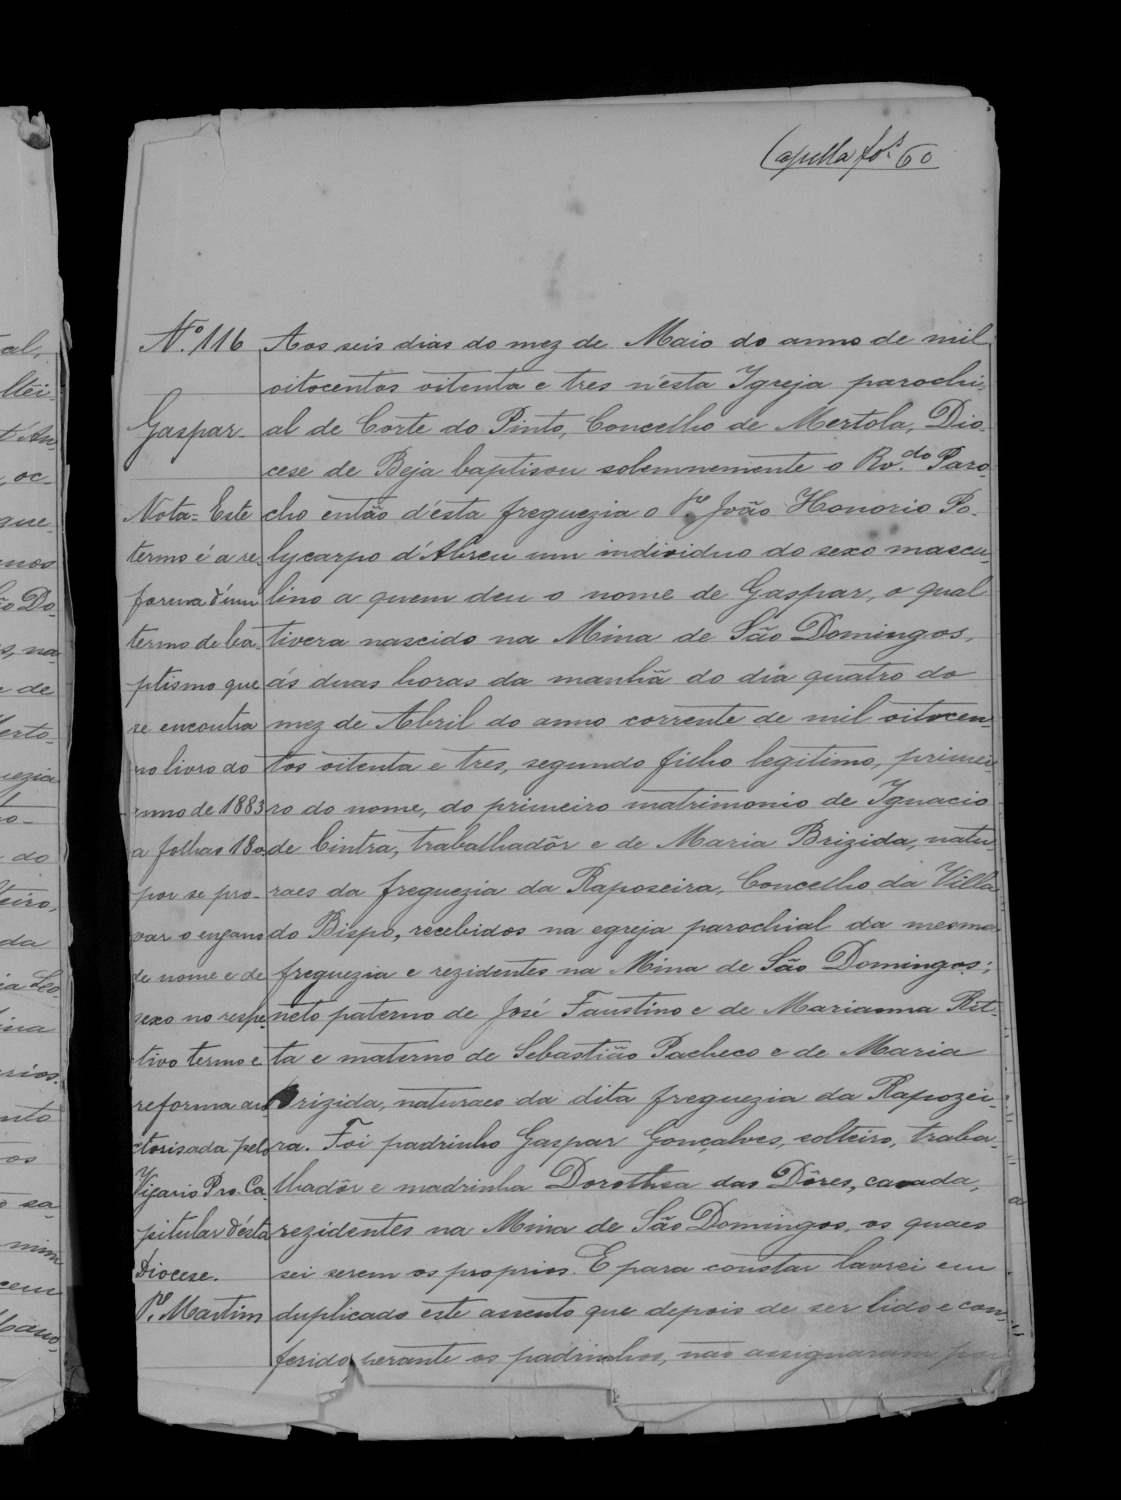 Capella fol. 60
N.º 116
Gaspar
Nota = Este
termo é a re-
forma d'um
termo de ba-
ptismo que
se encontra
no livro do
anno de 1883
a folhas 18
por se pro-
var o engano
de nome e de
sexo no respe-
ctivo termo e
reforma au-
ctorisada pelo
Vigario Pro. Ca-
pitular d'ésta
Diocese.
P.e Martim
Aos seis dias do mez de Maio do anno de mil
oitocentos oitenta e tres n'ésta Igreja parochi-
al de Corte do Pinto, Concelho de Mertola, Dio-
cese de Beja baptisou solemnemente o Rv.do Paro-
cho então d'ésta freguezia o P.e João Honorio Po-
lycarpo d'Abreu um individuo do sexo mascu-
lino a quem deu o nome de Gaspar, o qual
tivera nascido na Mina de São Domingos,
ás duas horas da manhã do dia quatro do
mez de Abril do anno corrente de mil oitocen-
tos oitenta e tres, segundo filho legitimo, primei-
ro do nome, do primeiro matrimonio de Ignacio
de Cintra, trabalhadôr e de Maria Brizida, natu-
raes da freguezia da Raposeira, Concelho da Villa
do Bispo, recebidos na egreja parochial da mesma
freguezia e rezidentes na Mina de São Domingos;
neto paterno de José Faustino e de Marianna Rit-
ta e materno de Sebastião Pacheco e de Maria
Brizida, naturaes da dita freguezia da Rapozei-
ra. Foi padrinho Gaspar Gonçalves, solteiro, traba-
lhadôr e madrinha Dorothea das Dôres, casada,
rezidentes na Mina de São Domingos, os quaes
sei serem os proprios. E para constar lavrei em
duplicado este assento que depois de ser lido e con-
ferido perante os padrinhos, não assignaram por